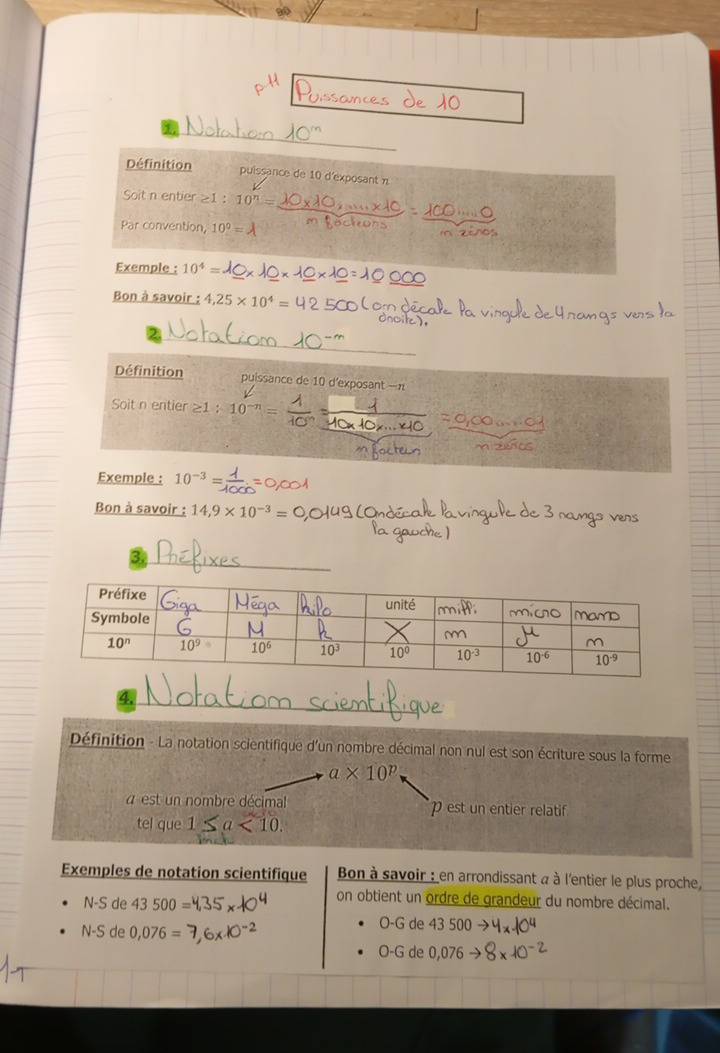 pH
Puissances de 10
1. Notation 10ⁿ
Définition
puissance de 10 d'exposant n
Soit n entier ≥1 : 10ⁿ = 10×10×.....×10 = 100.....0
n facteurs n zéros
Par convention, 10⁰ = 1
Exemple : 10⁴ = 10 × 10 × 10 × 10 = 10 000
Bon à savoir : 4,25 × 10⁴ = 42 500 (on décale la virgule de 4 rangs vers la
droite).
2. Notation 10⁻ⁿ
Définition
puissance de 10 d'exposant −n
Soit n entier ≥1 : 10⁻ⁿ = 1/10ⁿ = 1/10×10×...×10 = 0,00.....01
n facteurs n zéros
Exemple : 10⁻³ = 1/1000 = 0,001
Bon à savoir : 14,9 × 10⁻³ = 0,0149 (On décale la virgule de 3 rangs vers
la gauche)
3. Préfixes
Préfixe Giga Méga kilo unité milli micro nano
Symbole G M k X m µ n
10ⁿ 10⁹ 10⁶ 10³ 10⁰ 10⁻³ 10⁻⁶ 10⁻⁹
4. Notation scientifique
Définition - La notation scientifique d'un nombre décimal non nul est son écriture sous la forme
a × 10ᵖ
a est un nombre décimal
tel que 1 ≤ a < 10.
p est un entier relatif
Exemples de notation scientifique
• N-S de 43 500 = 4,35 × 10⁴
• N-S de 0,076 = 7,6 × 10⁻²
Bon à savoir : en arrondissant a à l'entier le plus proche,
on obtient un ordre de grandeur du nombre décimal.
• O-G de 43 500 → 4 × 10⁴
• O-G de 0,076 → 8 × 10⁻²